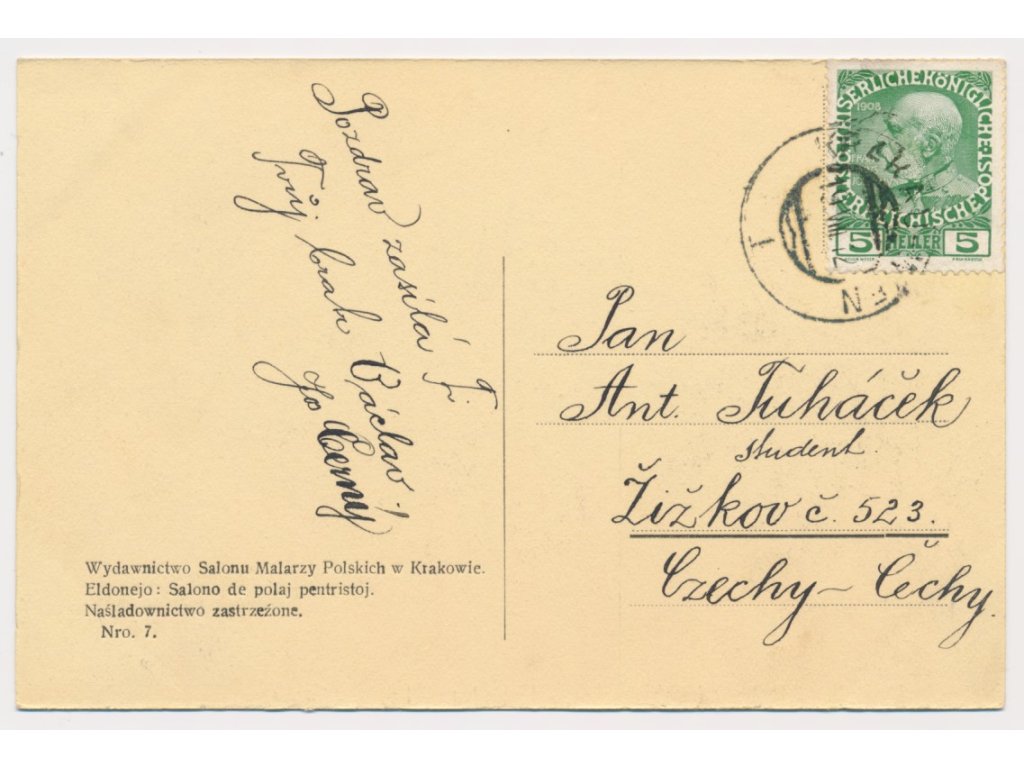 Pozdrav zasílá Ti
Tvůj brat Václav!
Jos Černý
Wydawnictwo Salonu Malarzy Polskich w Krakowie.
Eldonejo: Salono de polaj pentristoj.
Naśladownictwo zastrzeżone.
Nro. 7.
KAISERLICHE KÖNIGLICHE
ÖSTERREICHISCHE POST
1908
5 HELLER 5
Pan
Ant. Tuháček
student.
Žižkov č. 523.
Czechy – Čechy.